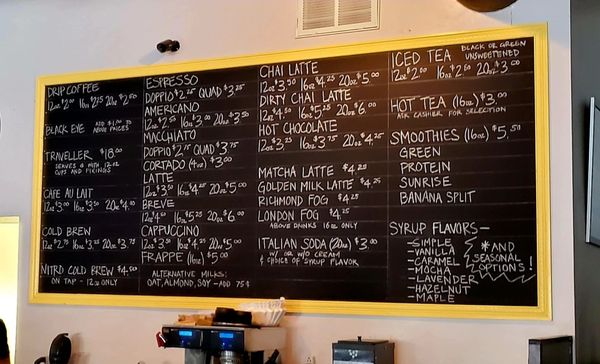 DRIP COFFEE
12oz $2.00 16oz $2.25 20oz $2.50
BLACK EYE ADD $1.00 TO
ABOVE PRICES
TRAVELLER $18.00
SERVES 8 WITH 12.OZ
CUPS AND FIXINGS
CAFE AU LAIT
12oz $3.00 16oz $3.50 20oz $4.00
COLD BREW
12oz $2.75 16oz $3.25 20oz $3.75
NITRO COLD BREW $4.50
ON TAP - 12oz ONLY
ESPRESSO
DOPPIO $2.25 QUAD $3.25
AMERICANO
12oz $2.50 16oz $3.00 20oz $3.50
MACCHIATO
DOPPIO $2.75 QUAD $3.75
CORTADO (4oz) $3.00
LATTE
12oz $3.50 16oz $4.25 20oz $5.00
BREVE
12oz 16oz $5.25 20oz $6.00
CAPPUCCINO
12oz $3.50 16oz $4.25 20oz $5.00
FRAPPE (16oz) $5.00
ALTERNATIVE MILKS:
OAT, ALMOND, SOY - ADD 75¢
CHAI LATTE
12oz $3.50 16oz $4.25 20oz $5.00
DIRTY CHAI LATTE
12oz $4.50 16oz $5.25 20oz $6.00
HOT CHOCOLATE
12oz $3.25 16oz $3.75 20oz $4.25
MATCHA LATTE $4.25
GOLDEN MILK LATTE $4.25
RICHMOND FOG $4.25
LONDON FOG $4.25
ABOVE DRINKS 16oz ONLY
ITALIAN SODA (20oz) $3.00
W/ OR W/O CREAM
& CHOICE OF SYRUP FLAVOR
ICED TEA BLACK OR GREEN
UNSWEETENED
12oz $2.00 16oz $2.50 20oz $3.00
HOT TEA (16oz) $3.00
ASK CASHIER FOR SELECTION
SMOOTHIES (16oz) $5.50
GREEN
PROTEIN
SUNRISE
BANANA SPLIT
SYRUP FLAVORS-
-SIMPLE
-VANILLA
-CARAMEL
-MOCHA
-LAVENDER
-HAZELNUT
-MAPLE
*AND
SEASONAL
OPTIONS!